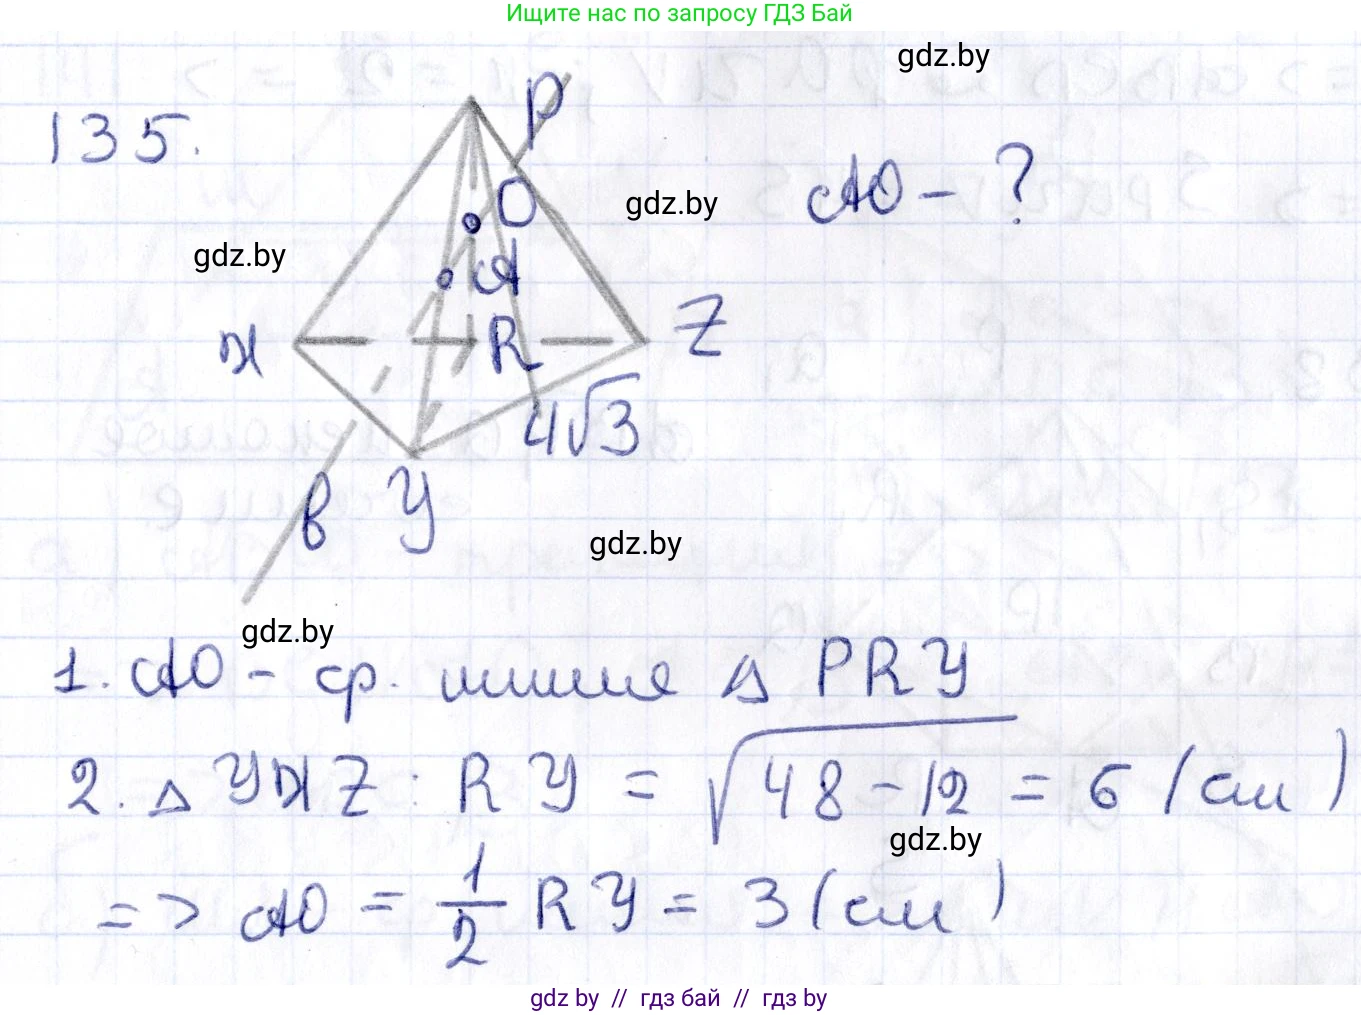 Ищите нас по запросу ГДЗ Бай
gdz.by
135.
P
AO - ?
O
gdz.by
gdz.by
A
X
R
Z
4√3
B
Y
gdz.by
gdz.by
1. AO - ср. линия Δ PRY
2. Δ YXZ : RY = √48-12 = 6 (см)
gdz.by
=> AO = 1/2 RY = 3 (см)
gdz by // гдз бай // гдз by